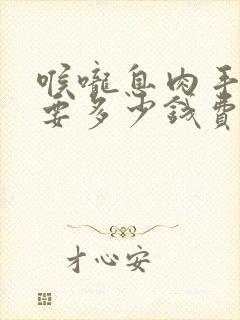 喉嚨息肉手
要多少錢費
才心安